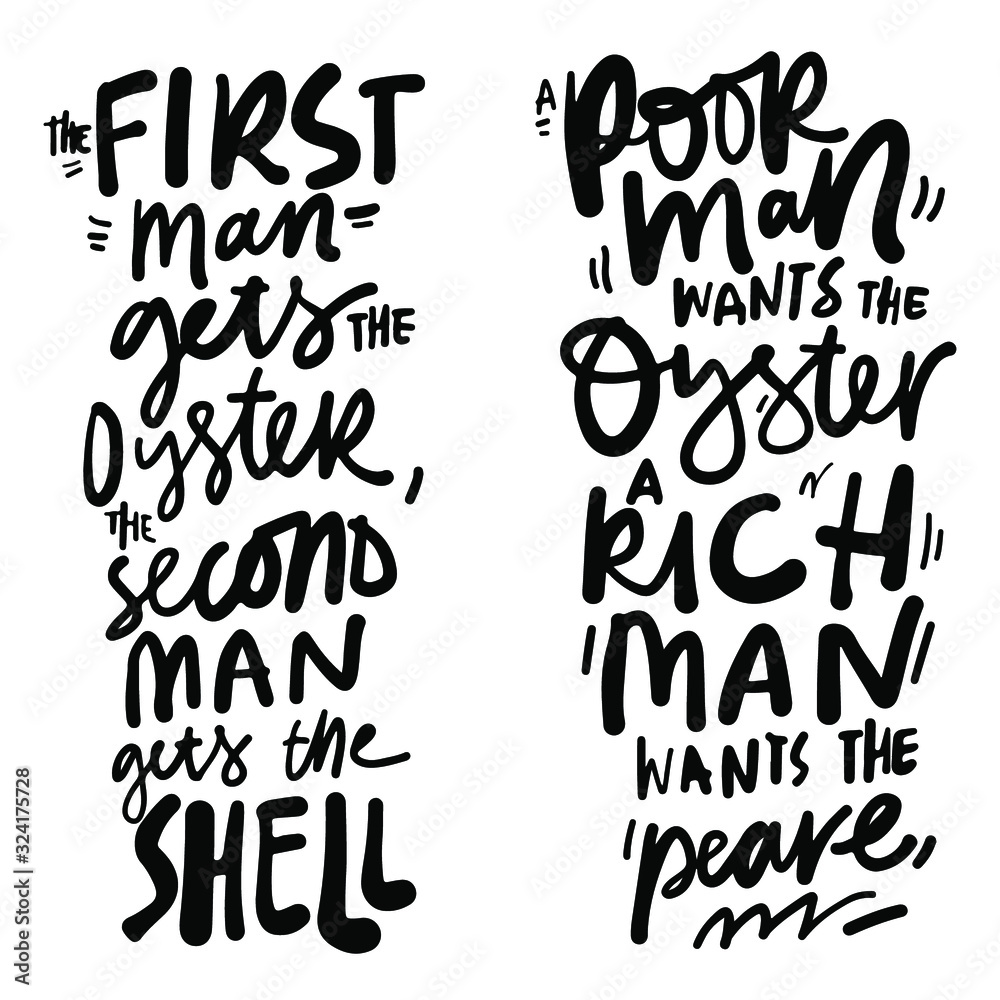 THE FIRST
man
gets THE
Oyster,
THE
second
MAN
gets the
SHELL
A poor
man
WANTS THE
Oyster
A
RICH
MAN
WANTS THE
peare,
Adobe Stock | #324175728